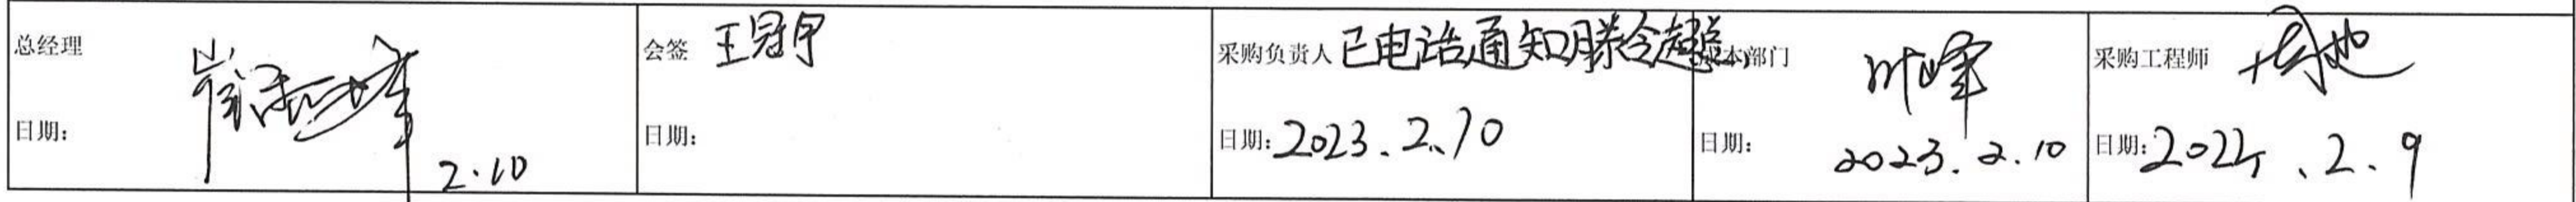 总经理
日期:
2.10
会签 王冠宇
日期:
采购负责人 已电话通知滕令超
日期: 2023.2.10
成本部门 叶峰
日期: 2023.2.10
采购工程师
日期: 2.9